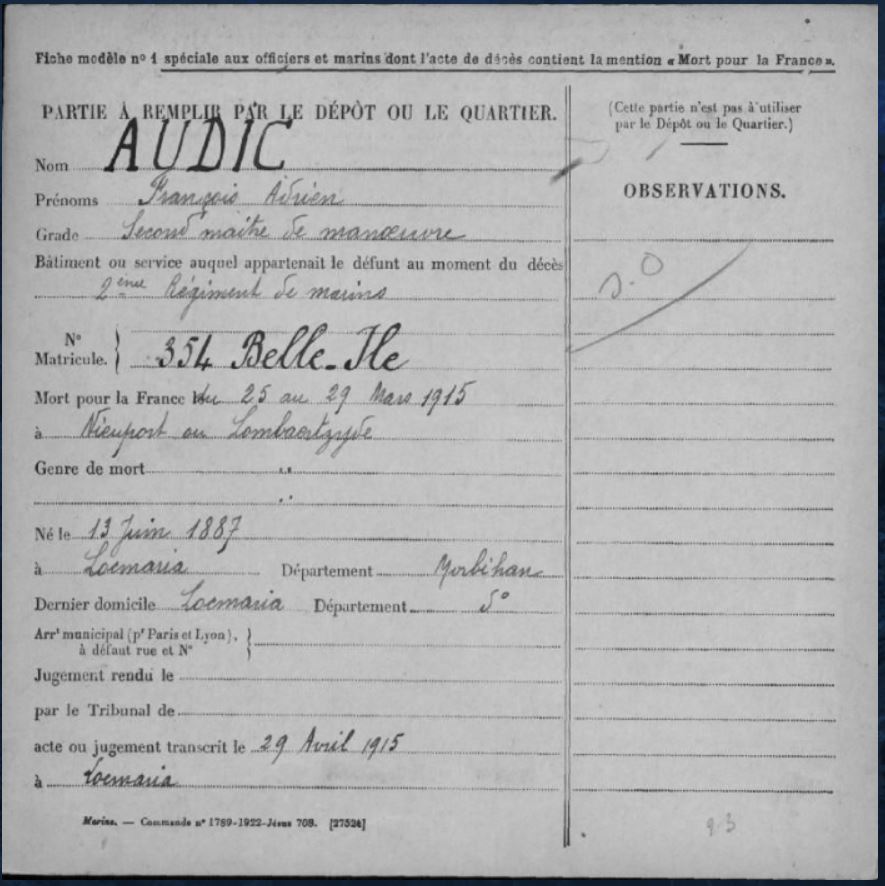 Fiche modèle n° 1 spéciale aux officiers et marins dont l'acte de décès contient la mention « Mort pour la France ».
PARTIE À REMPLIR PAR LE DÉPÔT OU LE QUARTIER.
Nom AUDIC
Prénoms François Adrien
Grade Second maître de manœuvre
Bâtiment ou service auquel appartenait le défunt au moment du décès
2ème Régiment de marins
N° Matricule. } 354 Belle-Ile
Mort pour la France du 25 au 29 Mars 1915
à Nieuport ou Lombaertzyde
Genre de mort "
"
Né le 13 Juin 1887
à Locmaria Département Morbihan
Dernier domicile Locmaria Département d°
Arrt municipal (pr Paris et Lyon), }
à défaut rue et N°
Jugement rendu le
par le Tribunal de
acte ou jugement transcrit le 29 Avril 1915
à Locmaria
Marine. — Commande n° 1789-1922-Jésus 708. [27524]
(Cette partie n'est pas à utiliser
par le Dépôt ou le Quartier.)
OBSERVATIONS.